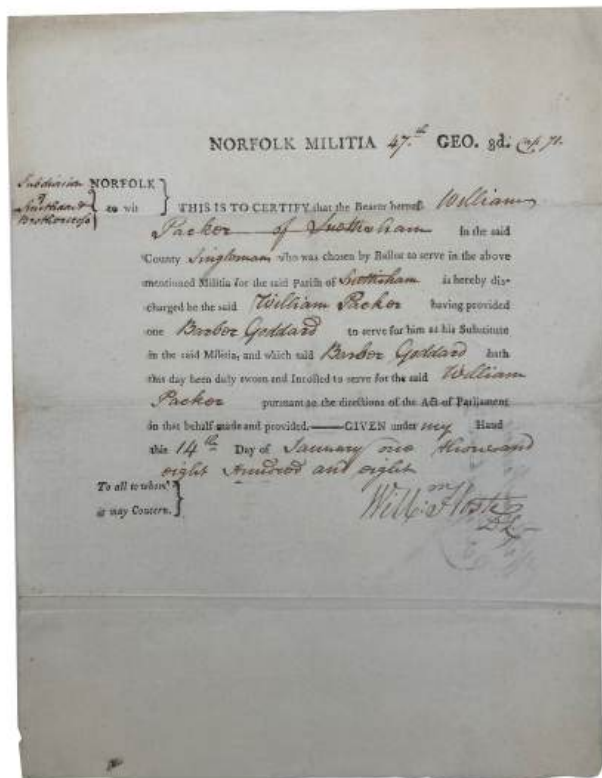 NORFOLK MILITIA 47.th GEO. 3d. Cap 71.
Subdivision of Smithdon & Brothercross } NORFOLK to wit } THIS IS TO CERTIFY that the Bearer hereof William
Packer of Snettisham In the said
County Singleman who was chosen by Ballot to serve in the above
mentioned Militia for the said Parish of Snettisham is hereby dis-
charged he the said William Packer having provided
one Barber Goddard to serve for him as his Substitute
in the said Militia, and which said Barber Goddard hath
this day been duly sworn and Inrolled to serve for the said William
Packer pursuant to the directions of the Act of Parliament
in that behalf made and provided.——GIVEN under my Hand
this 14th Day of January one thousand
eight Hundred and eight
To all to whom
it may Concern. }
Willm. Hoste
DL